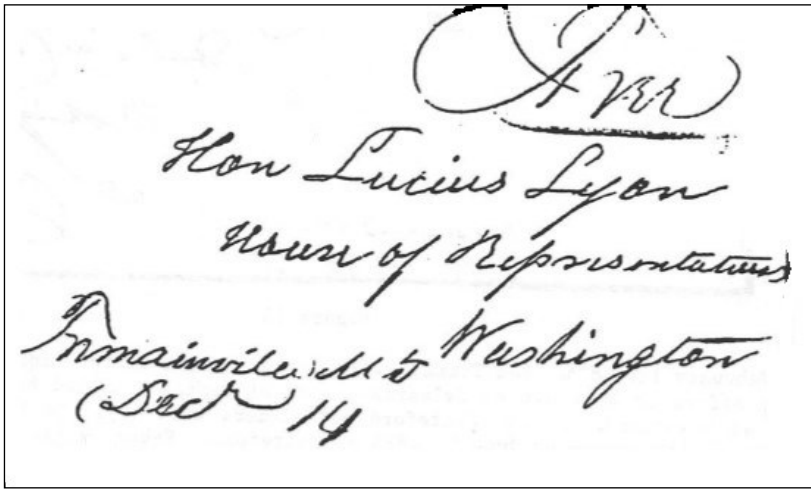 Free
Hon Lucius Lyon
House of Representatives
Washington
Tremainville M T
Dec 14